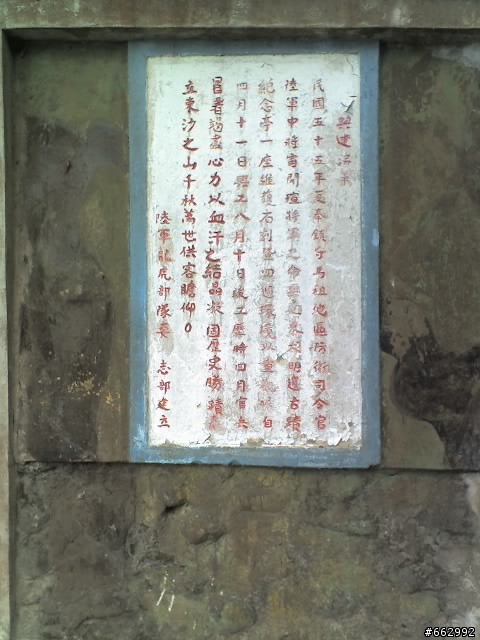 興建沿革
民國五十五年夏奉鎮守馬祖地區防衛司令官
陸軍中將 開 將軍之命興建 明遺古蹟
紀念亭一座維護石刻暨四週環境以 自
四月十一日興工八月十日竣工歷時四月官兵
冒暑竭盡心力以血汗之結晶凝固歷史勝蹟
立東沙之山千秋萬世供客瞻仰。
陸軍龍虎部隊 志部建立
#662992